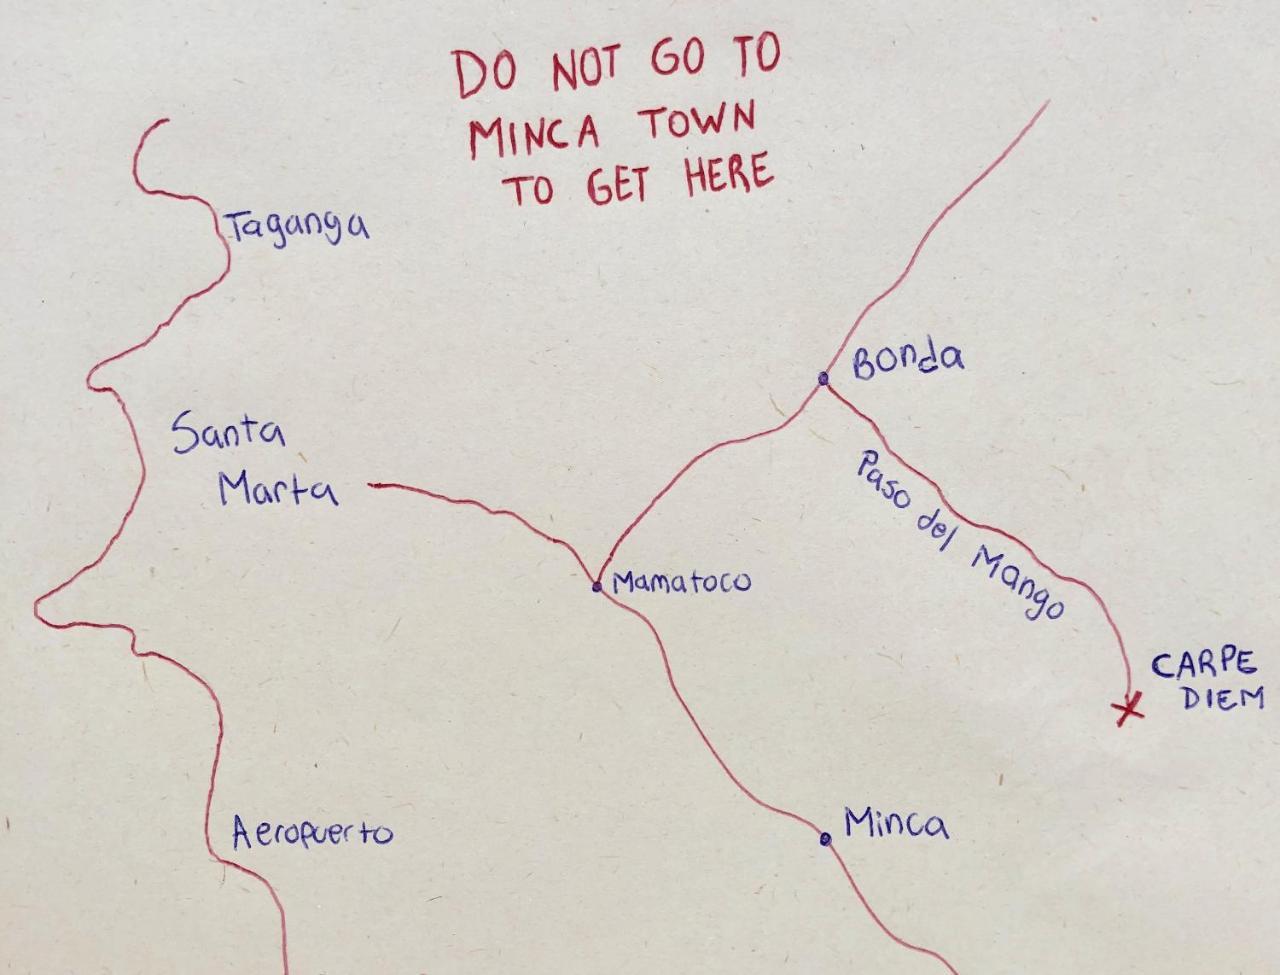 DO NOT GO TO
MINCA TOWN
TO GET HERE
Taganga
Bonda
Santa
Marta
Paso del Mango
Mamatoco
CARPE
DIEM
Aeropuerto
Minca